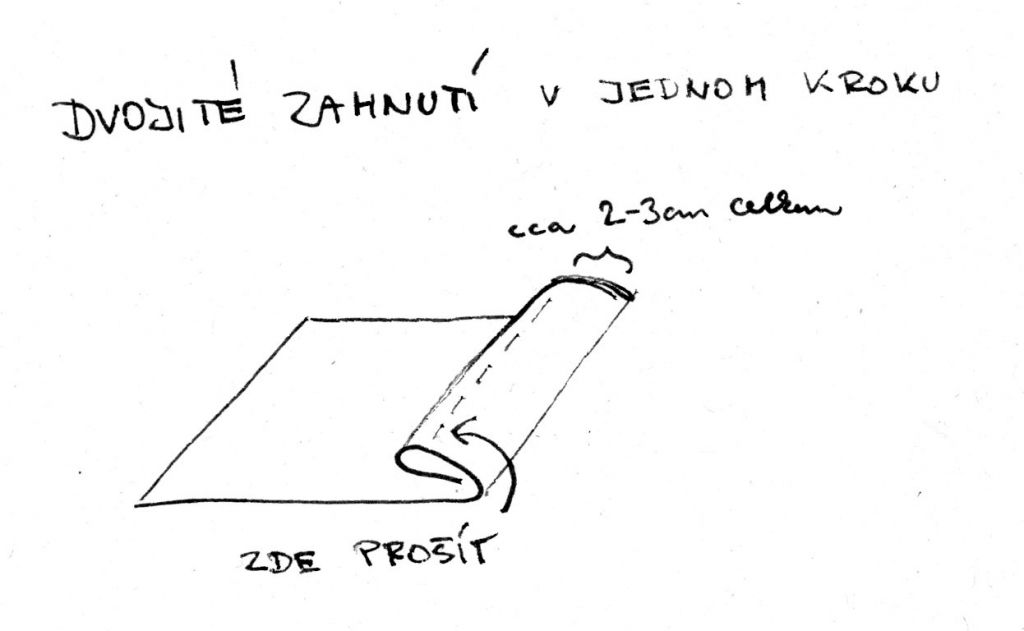 DVOJITÉ ZAHNUTÍ V JEDNOM KROKU
cca 2-3cm celkem
ZDE PROŠÍT